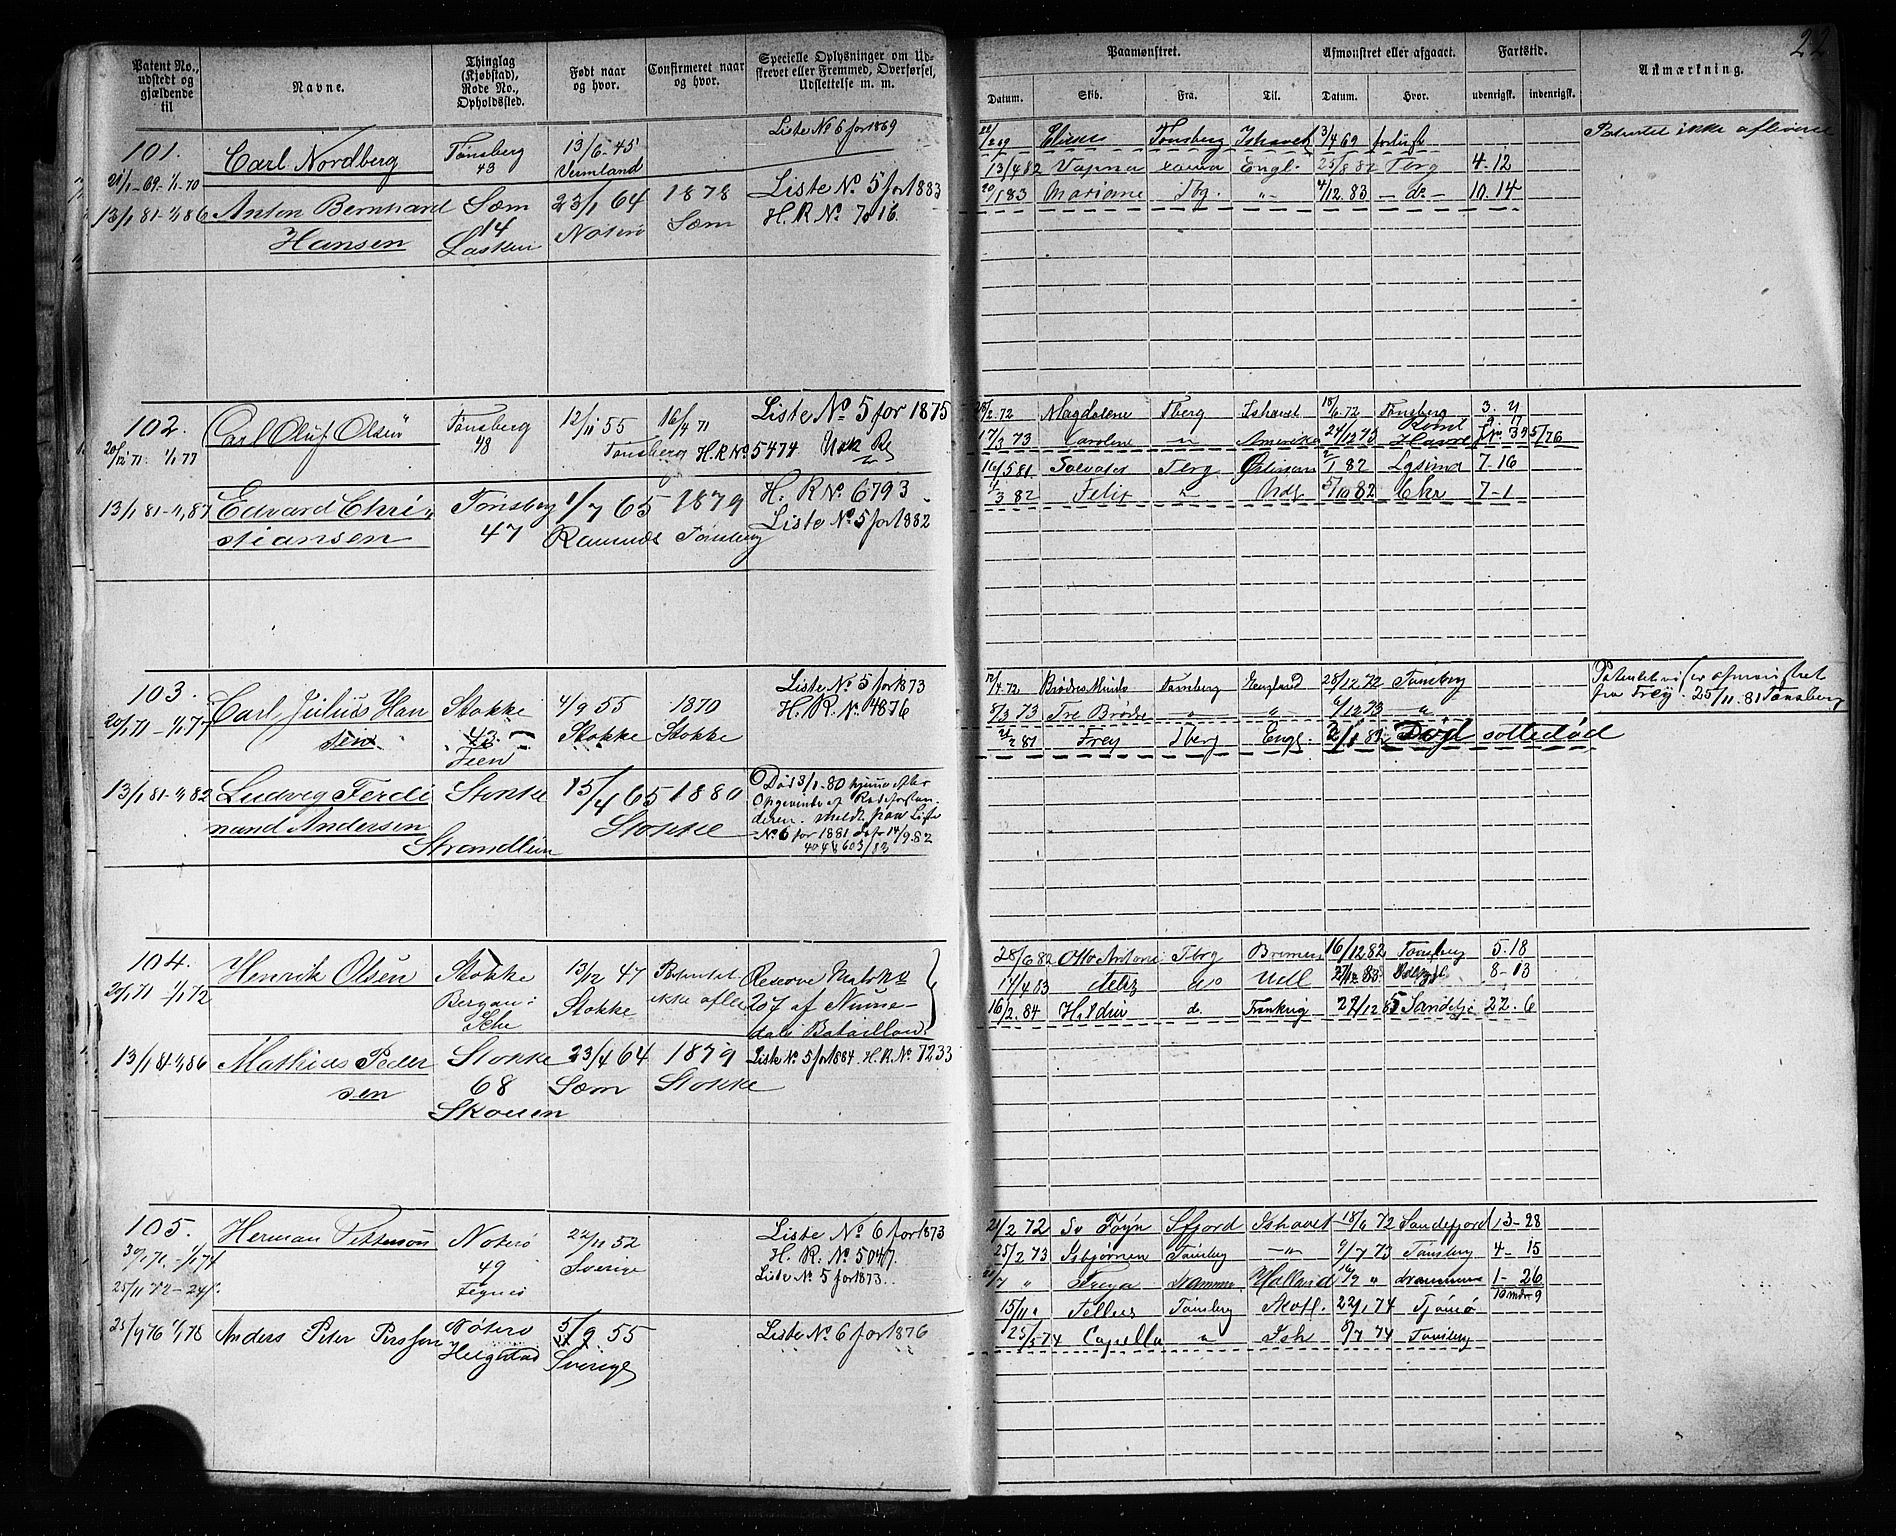 22
Patent No., udstedt og gjældende til
Navne.
Thinglag (Kjøbstad), Rode No., Opholdssted.
Født naar og hvor.
Confirmeret naar og hvor.
Specielle Oplysninger om Udskrevet eller Fremmed, Overførsel, Udslettelse m. m.
Paamønstret.
Datum. Skib. Fra. Til.
Afmønstret eller afgaaet.
Datum. Hvor.
Fartstid.
udenrigsk. indenrigsk.
Anmærkning.
101.
21/1-69-1/1-70
Carl Nordberg
Tønsberg
43
13/6-45
Vermland
Liste No 6 for 1869
Tønsberg Ishavet 3/4 69 forlist
Patentet ikke afleveret
13/1 81-1/1 86
Anton Bernhard
Hansen
Sæm
14
23/1 64
Noterø
1878
Sæm
Liste No 5 for 1883
H. R No 7016.
13/4 82 Engl. 25/8 82 Tbrg 4-12
20/1 83 Mariane Tbg. " 4/12 83 do 10.14
102.
20/12 71. 1/1 77
Carl Oluf Olsen
Tønsberg
48
12/11 55
16/4 71
Tønsberg
Liste No 5 for 1875
H. R No 5474
2.72 Magdalene Tberg Ishavet 18/6 72 Tønsberg
17/3 73 Caroline " Amerika 24/12 73 Havre
13/1 81-1/1 87
Edvard Christiansen
Tønsberg
47
1/7 65
Ramnæs
1879
Tønsberg
H. R No 6793
Liste No 5 for 1882
16/5 81 Tbrg 2/1 82 7-16
3 82 Felix " Udl 5/10 82 Chr 7-1
103.
20/1 71-1/1 77
Carl Julius Hansen
Stokke
43
Feen
4/9 55
Stokke
1870
Stokke
Liste No 5 for 1873
H. R. No 4876
12/4 72 Tønsberg England 28/12 72 Tønsberg
8/3 73 Tre Brødre " " 12 73 "
2 81 Frey Tberg Engl. Død sottedød
fra Frey. 25/11. 81 Tønsberg
13/1 81-1/1 82
Ludvig Ferdinand Andersen
Stokke
15/4 65
Stokke
1880
Død 3/1-80 hjemme efter
Opgivende af Rodeforstanderen. meldt paa Liste
No 6 for 1881
104.
20/1 71-1/1 72
Henrik Olsen
Stokke
13/12 47
Stokke
Patentet
ikke aflev
Reserve Mat. No
207 af Nummedals Bataillon
13/1 81-1/1 86
Mathias Pedersen
Stokke
68
Skouen
23/4 64
Sæm
1879
Stokke
Liste No 5 for 1884 H. R. No 7233
28/6 82 Otto Antoni Tbrg Bremen 16/12 82 Tønsberg 5.18
14/4 83 do Udl 8-13
16/2. 84 d. Frankrig 22. 6
105.
30/1 71.-1/1 74
25/11 72-
Herman Pettersen
Noterø
49
22/11 52
Sverige
Liste No 6 for 1873
H. R. No 5047.
Liste No 5 for 1873.
21/2 72 Sv Foyn Sfjord Ishavet 18/6 72 Sandefjord 13-28
25/2 73 Isbjørnen Tønsberg " 9/7 73 Tønsberg 4-15
/7 " Freya Drammen Holland " Drammen 1-26
15/11 " Tellus Tønsberg Skotl. 22/1 74 Tjømø
25/2 74 Capella " Ish 8/7 74 Tønsberg
25/9 76 1/1 78
Anders Peter Persson
Nøterø
Helgestad
5/9 55
Sverige
Liste No 6 for 1876